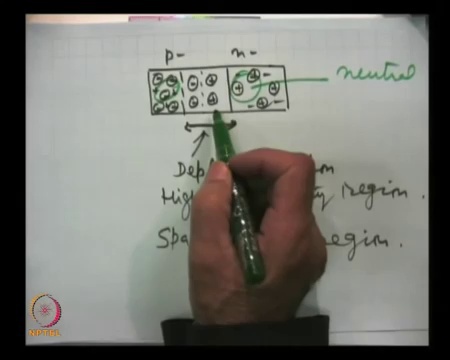 p- n-
neutral
Dep
Hig ty region.
Spa region.
NPTEL